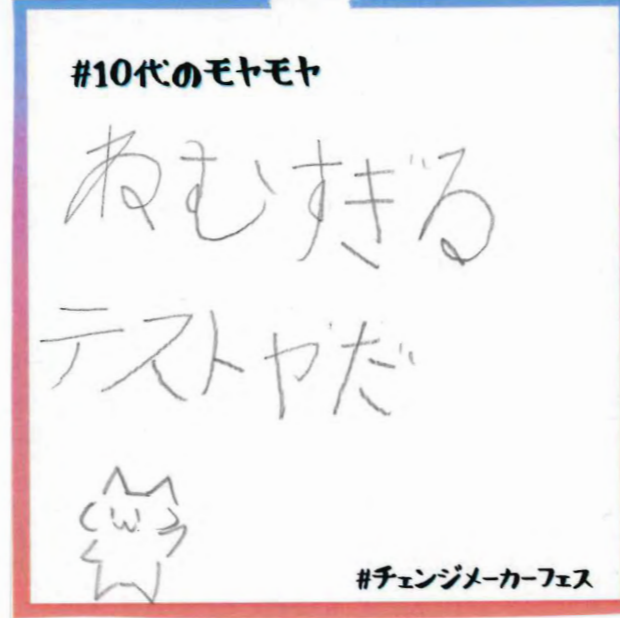 #10代のモヤモヤ
ねむすぎる
テストやだ
#チェンジメーカーフェス